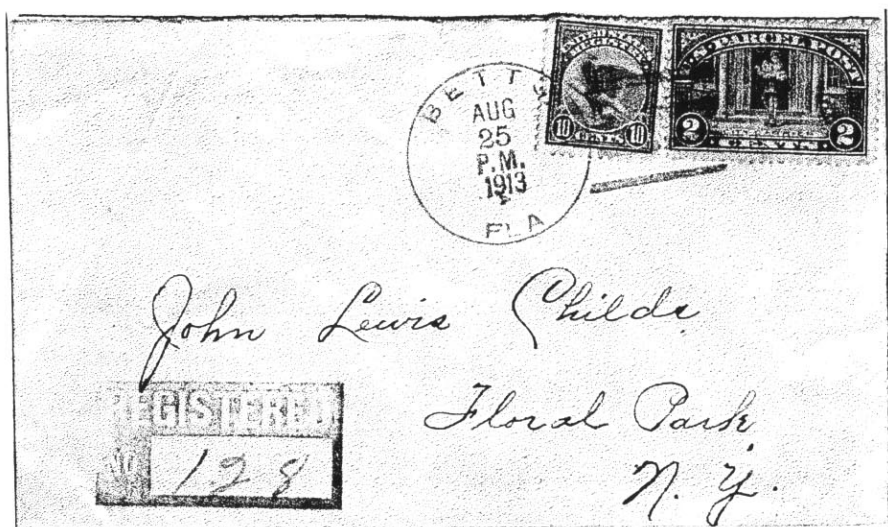 BETTS
AUG
25
P.M.
1913
FLA
REGISTRY
10 CENTS 10
U.S. PARCEL POST
2 CENTS 2
John Lewis Childs
Floral Park
N. Y.
REGISTERED.
No 128